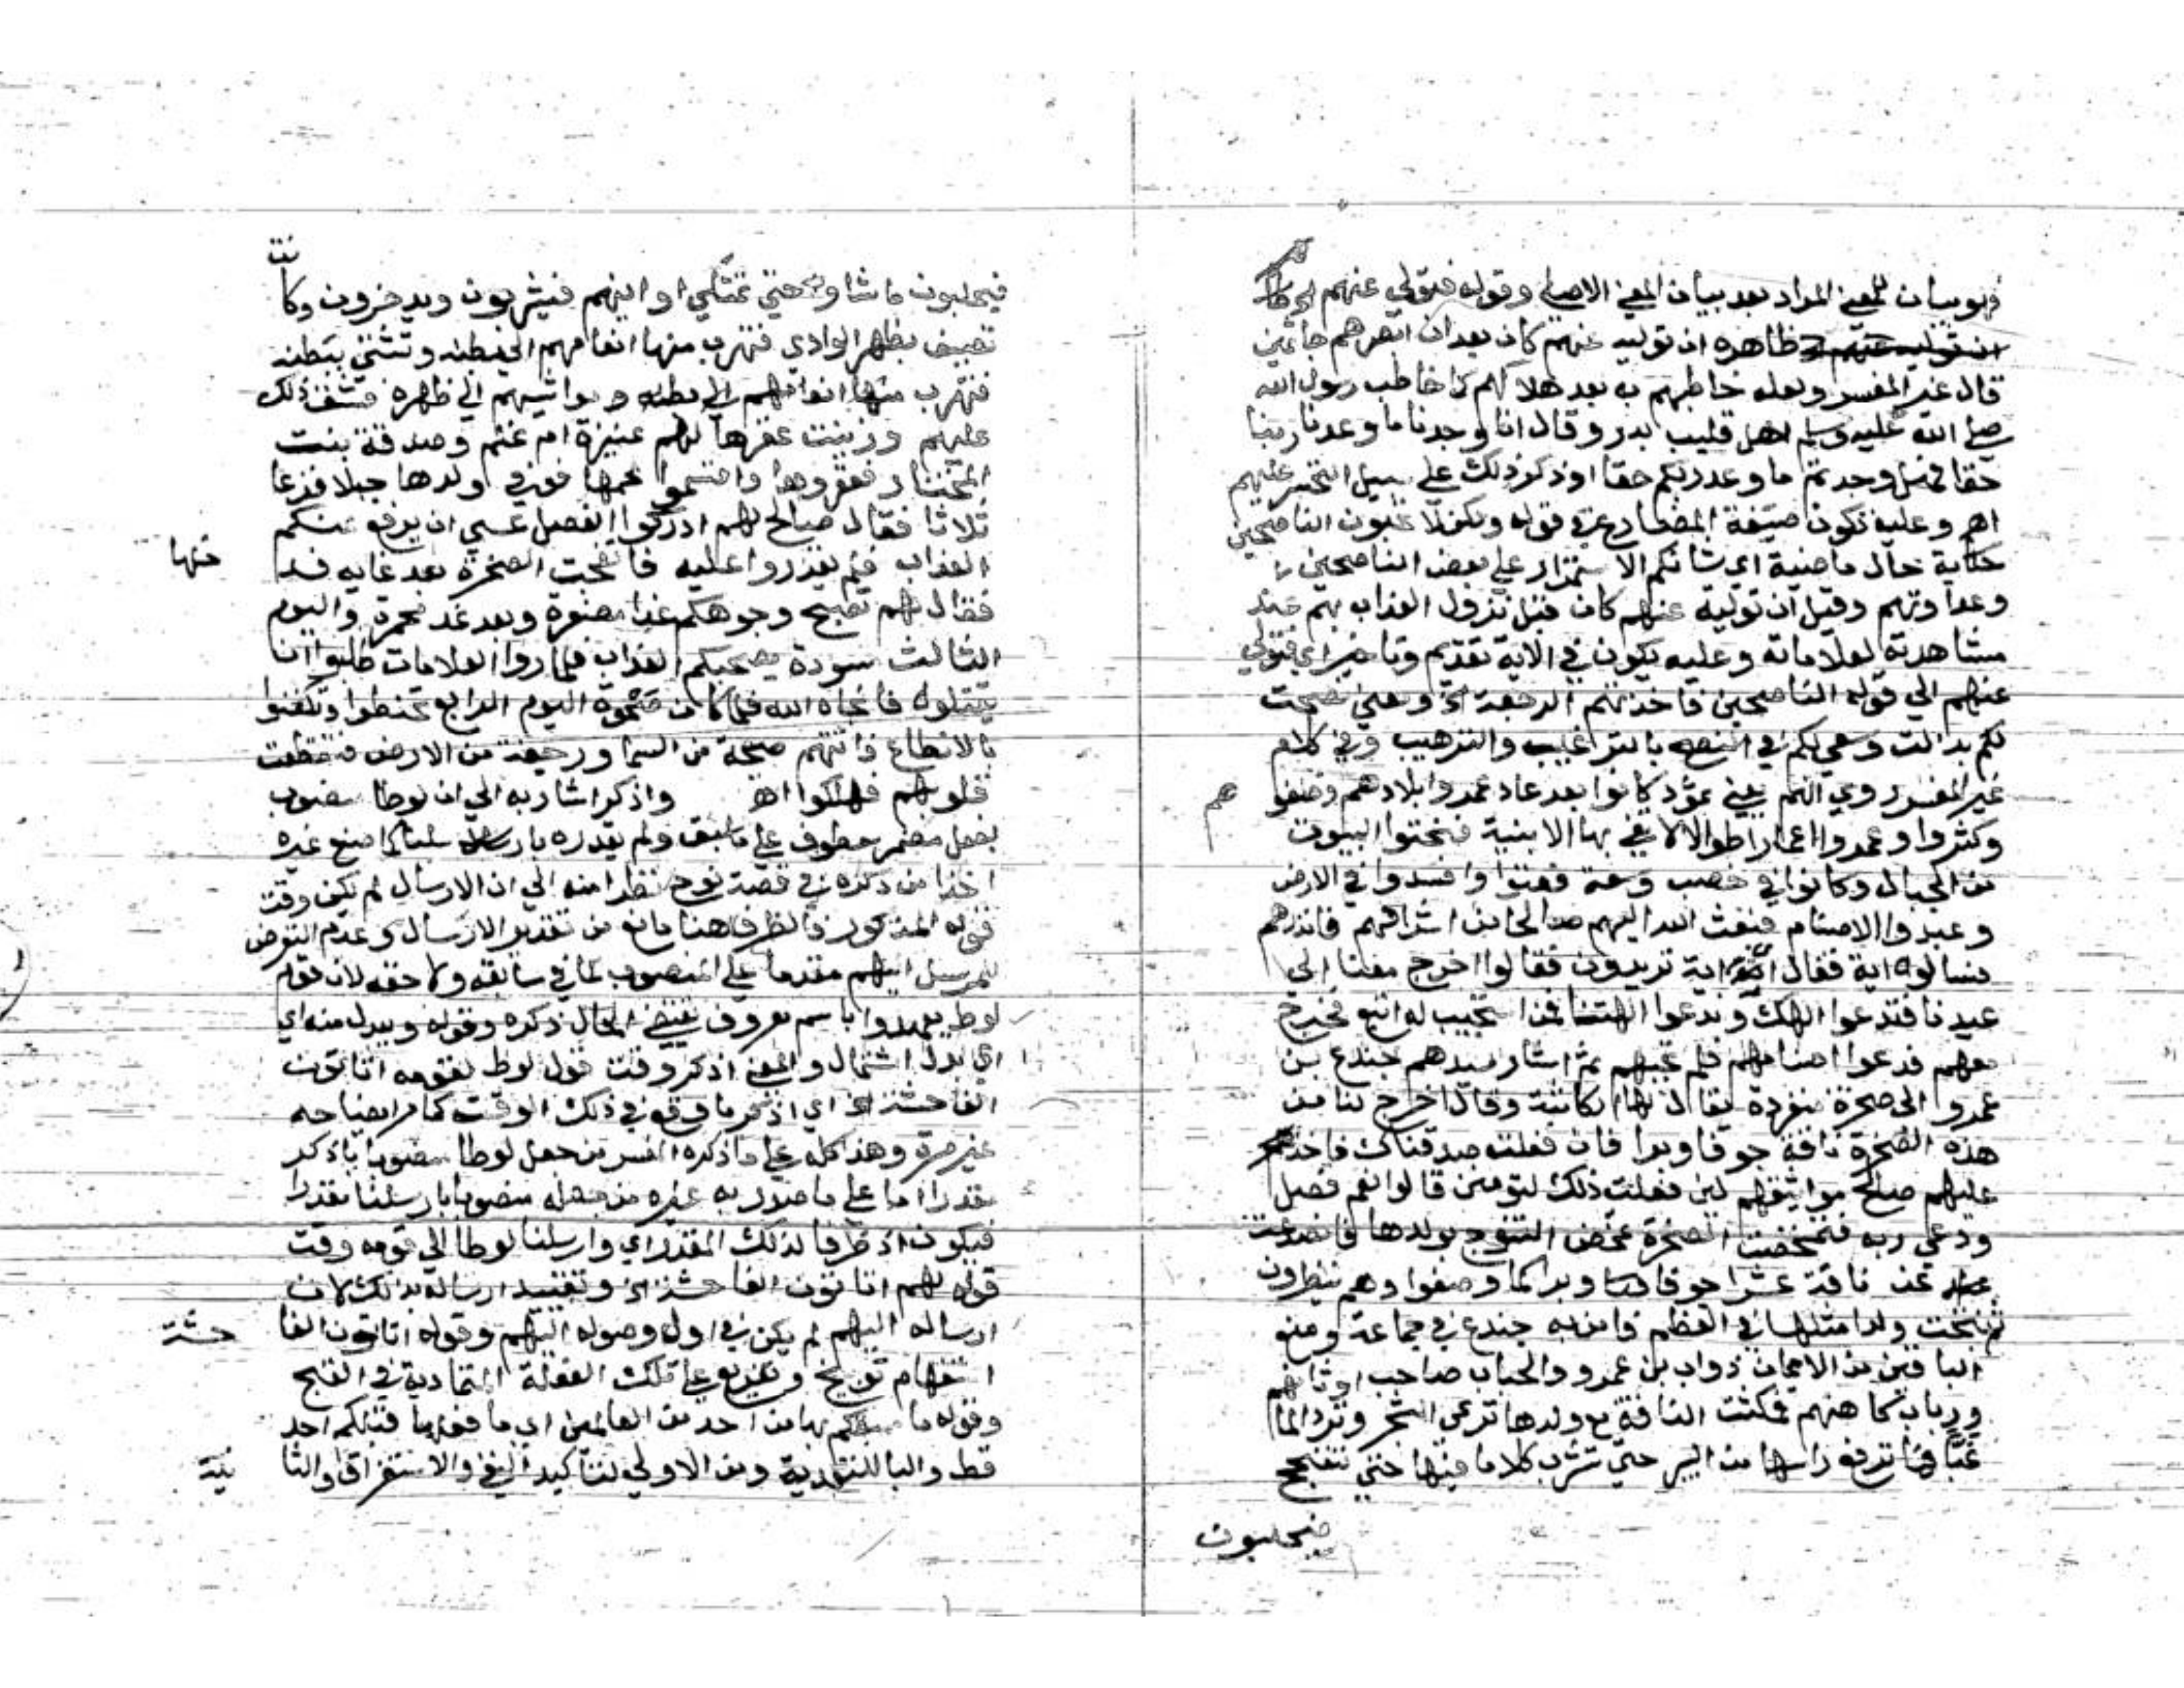 فهو بيان للمعنى المراد بعد بيان المعنى الاصلي وقوله فتولى عنهم
ظاهره ان توليه عنهم كان بعد ان ابصرهم جاثمين
قال غير المفسر ولعله خاطبهم به بعد هلاكهم كما خاطب رسول الله
صلى الله عليه وسلم اهل قليب بدر وقال انا وجدنا ما وعدنا ربنا
حقا فهل وجدتم ما وعد ربكم حقا او ذكر ذلك على سبيل التحسر عليهم
اهر وعليه تكون صيغة المضارع في قوله ولكن لا تحبون الناصحين
حكاية حال ماضية اي شانكم الاستمرار على بغض الناصحين
وعداوتهم وقيل ان توليه عنهم كان قبل نزول العذاب بهم عند
مشاهدته لعلاماته وعليه يكون في الاية تقديم وتاخير اي فتولى
عنهم الى قوله الناصحين فاخذتهم الرجفة الخ ومعنى نصحت
لكم بذلت وسعي لكم في النصح بالترغيب والترهيب وفي كلام
غير المفسر روي انهم يعني ثمود كانوا بعد عاد عمروا بلادهم وخلفوهم
وكثروا وعمروا اعمارا طوالا لا تفي بها الابنية فنحتوا البيوت
من الجبال وكانوا في خصب وسعة فعتوا وافسدوا في الارض
وعبدوا الاصنام فبعث الله اليهم صالحا من اشرافهم فانذرهم
فسالوه اية فقال اية اية تريدون فقالوا اخرج معنا الى
عيدنا فتدعوا الهك وندعوا الهتنا فمن استجيب له اتبع فخرج
معهم فدعوا اصنامهم فلم تجبهم ثم اشار سيدهم جندع بن
عمرو الى صخرة منفردة يقال لها الكاثبة وقال اخرج لنا من
هذه الصخرة ناقة جوفا وبرا فان فعلت صدقناك فاخذ
عليهم صالح مواثيقهم لئن فعلت ذلك لتومنن قالوا نعم فصلى
ودعى ربه فتمخضت الصخرة تمخض النتوج بولدها فانصدعت
عن ناقة عشرا جوفا وبرا كما وصفوا وهم ينظرون
ثم نتجت ولدا مثلها في العظم فامن به جندع في جماعة ومنع
الباقين من الايمان ذواب بن عمرو والحباب صاحب اوثانهم
ورباب كاهنهم فمكثت الناقة مع ولدها ترعى الشجر وترد الما
غبا فما ترفع راسها من البير حتى تشرب كل ما فيها حتى تتفحج
فيحلبون
فيحلبون ما شاوا حتى تمتلي اوانيهم فيشربون ويدخرون وكانت
تصيف بظهر الوادي فتهرب منها انعامهم الى بطنه وتشتي ببطنه
فتهرب منها انعامهم ومواشيهم الى ظهره فشق ذلك
عليهم وزينت عقرها لهم عنيزة ام غنم وصدقة بنت
المختار فعقروها واقتسموا لحمها فرقي ولدها جبلا فرغا
ثلاثا فقال صالح لهم ادركوا الفصيل عسى ان يرفع عنكم
العذاب فلم يقدروا عليه فانفجت الصخرة بعد رغايه فدخلها
فقال لهم تصبح وجوهكم غدا مصفرة وبعد غد محمرة واليوم
الثالث مسودة يصبحكم العذاب فلما راوا العلامات طلبوا ان
يقتلوه فانجاه الله فلما كان ضحوة اليوم الرابع تحنطوا وتكفنوا
بالانطاع فاتتهم صيحة من السما ورجفة من الارض فتقطعت
قلوبهم فهلكوا اهـ واذكر اشار به الى ان لوطا منصوب
بفعل مضمر معطوف على ما سبق ولم يقدره بارسلنا كما صنع غيره
اخذا من ذكره في قصة نوح نظرا منه الى ان الارسال لم يكن وقت
قوله المذكور فالظرف هنا مانع من تقدير الارسال وعدم التعرض
للمرسل اليهم مقدما على المنصوب كما في سابقه ولاحقه لان قوم
لوط لم يعهدوا باسم معروف يقتضي الحال ذكره وقوله ويبدل منه اي
اي بدل اشتمال والمعنى اذكر وقت قول لوط لقومه اتاتون
الفاحشة الخ اي اذكر ما وقع في ذلك الوقت كما مر ايضاحه
غير مرة وهذا كله على ما ذكره المفسر من جعل لوطا منصوبا باذكر
مقدرا اما على ما صدر به غيره من جعله منصوبا بارسلنا مقدرا
فيكون اذ ظرفا لذلك المقدر اي وارسلنا لوطا الى قومه وقت
قوله لهم اتاتون الفاحشة الخ وتقييد ارساله بذلك لان
ارساله اليهم لم يكن في اول وصوله اليهم وقوله اتاتون الفاحشة
استفهام توبيخ وتقريع على تلك الفعلة المتمادية في القبح
وقوله ما سبقكم بها من احد من العالمين اي ما فعلها قبلكم احد
قط والبا للتعدية ومن الاولى لتاكيد النفي والاستغراق والثانية